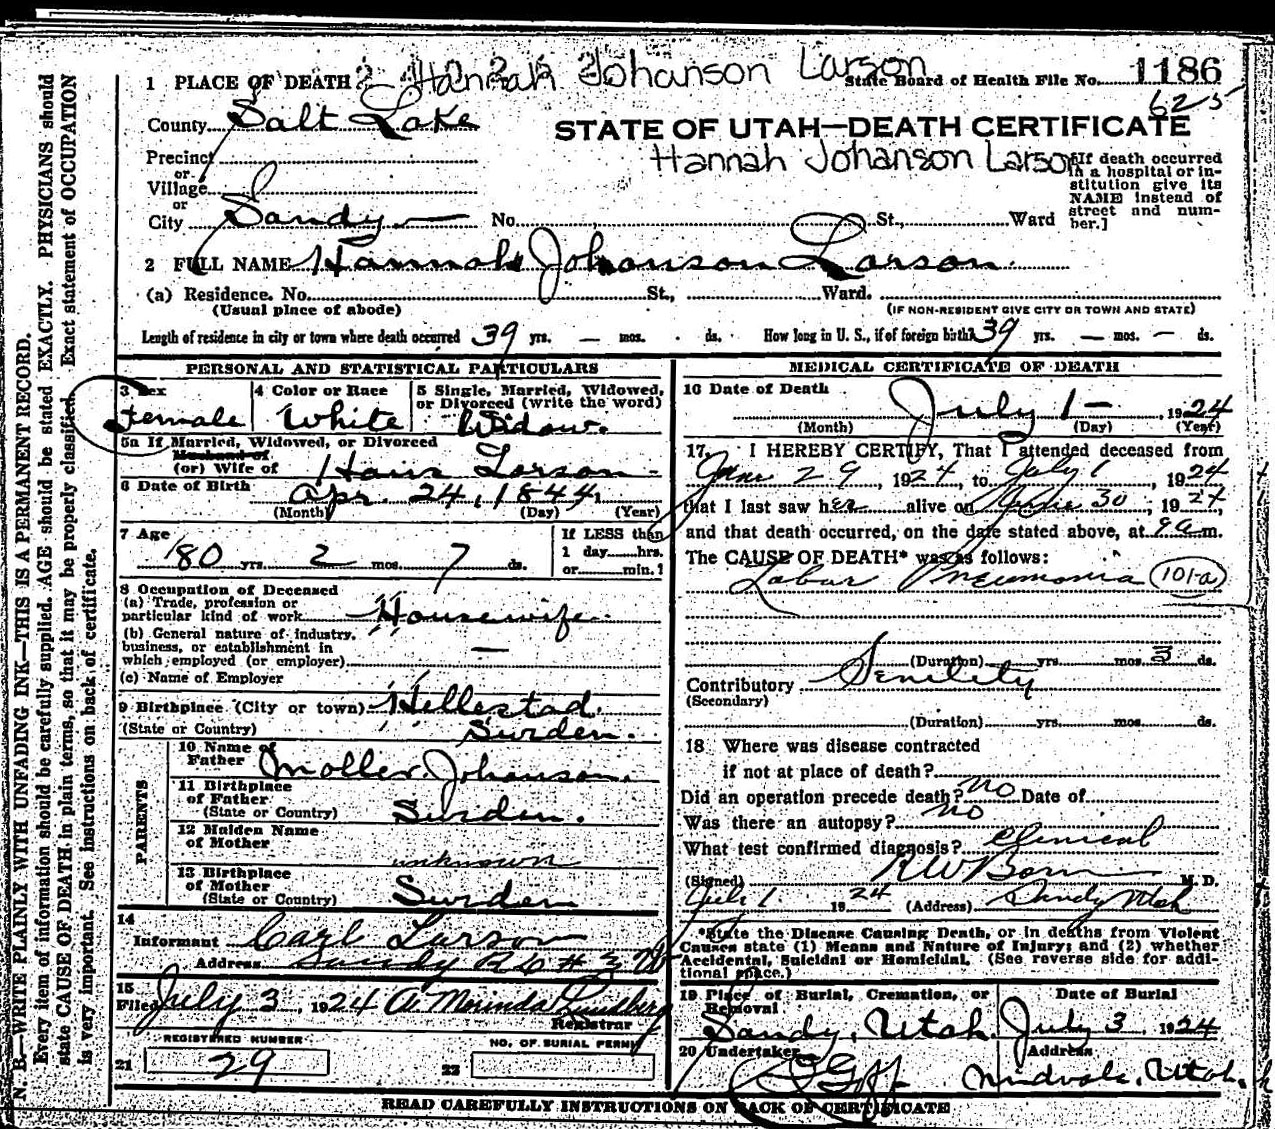 Hannah Johanson Larson
1 PLACE OF DEATH
State Board of Health File No. 1186
625
County Salt Lake
STATE OF UTAH—DEATH CERTIFICATE
Hannah Johanson Larson
Precinct
or
Village
or
City Sandy No. St., Ward
[If death occurred in a hospital or in-
stitution give its
NAME instead of
street and num-
ber.]
2 FULL NAME Hannah Johanson Larson
(a) Residence. No. St., Ward.
(Usual place of abode) (IF NON-RESIDENT GIVE CITY OR TOWN AND STATE)
Length of residence in city or town where death occurred 39 yrs. — mos. ds. How long in U. S., if of foreign birth? 39 yrs. — mos. — ds.
PERSONAL AND STATISTICAL PARTICULARS
3 Sex Female
4 Color or Race White
5 Single, Married, Widowed,
or Divorced (write the word)
Widow.
5a If Married, Widowed, or Divorced
Husband of
(or) Wife of Hans Larson
6 Date of Birth Apr. 24, 1844
(Month) (Day) (Year)
7 Age 80 yrs. 2 mos. 7 ds.
If LESS than
1 day hrs.
or min.?
8 Occupation of Deceased
(a) Trade, profession or
particular kind of work Housewife
(b) General nature of industry,
business, or establishment in
which employed (or employer) —
(c) Name of Employer
9 Birthplace (City or town) Hellestad
(State or Country) Sweden.
PARENTS
10 Name of
Father Moller Johanson
11 Birthplace
of Father
(State or Country) Sweden.
12 Maiden Name
of Mother
unknown
13 Birthplace
of Mother
(State or Country) Sweden
14
Informant Carl Larson
Address Sandy
15
Filed July 3, 1924 A. Morinda Lundberg
Registrar
REGISTERED NUMBER
21 29
NO. OF BURIAL PERMIT
22
MEDICAL CERTIFICATE OF DEATH
16 Date of Death
July 1 — , 1924
(Month) (Day) (Year)
17. I HEREBY CERTIFY, That I attended deceased from
June 29, 1924, to July 1, 1924
that I last saw her alive on June 30, 1924,
and that death occurred, on the date stated above, at 9 a m.
The CAUSE OF DEATH* was as follows:
Lobar Pneumonia 101-a
(Duration) yrs. mos. 3 ds.
Contributory Senility
(Secondary)
(Duration) yrs. mos. ds.
18 Where was disease contracted
if not at place of death?
Did an operation precede death? no Date of
Was there an autopsy? no
What test confirmed diagnosis? Clinical
(Signed) M. D.
July 1 1924 (Address) Sandy Utah
*State the Disease Causing Death, or in deaths from Violent
Causes state (1) Means and Nature of Injury; and (2) whether
Accidental, Suicidal or Homicidal. (See reverse side for addi-
tional space.)
19 Place of Burial, Cremation, or
Removal
Date of Burial
Sandy, Utah July 3 1924
20 Undertaker
Address
Goff Midvale, Utah.
READ CAREFULLY INSTRUCTIONS ON BACK OF CERTIFICATE
N. B.—WRITE PLAINLY WITH UNFADING INK—THIS IS A PERMANENT RECORD.
Every item of information should be carefully supplied. AGE should be stated EXACTLY. PHYSICIANS should
state CAUSE OF DEATH in plain terms, so that it may be properly classified. Exact statement of OCCUPATION
is very important. See instructions on back of certificate.